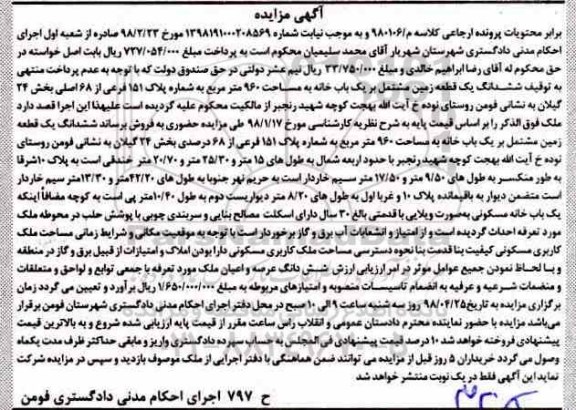 آگهی مزایده
برابر محتویات پرونده اجرایی کلاسه م/۹۸۰۱۰۶ و به موجب نیابت شماره ۱۳۹۸۱۹۱۰۰۰۲۰۸۵۶۹ مورخ ۹۸/۲/۲۳ صادره از شعبه اول اجرای
احکام مدنی دادگستری شهرستان شهریار آقای محمد سلیمیان محکوم است به پرداخت مبلغ ۷۳۷/۰۵۴/۰۰۰ ریال بابت اصل خواسته در
حق محکوم له آقای رضا ابراهیم خالدی و مبلغ ۳۳/۷۵۰/۰۰۰ ریال نیم عشر دولتی در حق صندوق دولت که با توجه به عدم پرداخت منتهی
به توقیف ششدانگ یک قطعه زمین مشتمل بر یک باب خانه به مساحت ۹۶۰ متر مربع به شماره پلاک ۱۵۱ فرعی از ۶۸ اصلی بخش ۲۴
گیلان به نشانی فومن روستای نوده خ آیت الله بهجت کوچه شهید رنجبر از مالکیت محکوم علیه گردیده است علیهذا این اجرا قصد دارد
ملک فوق الذکر را بر اساس قیمت پایه به شرح نظریه کارشناسی مورخ ۹۸/۱/۱۷ طی مزایده حضوری به فروش برساند ششدانگ یک قطعه
زمین مشتمل بر یک باب خانه به مساحت ۹۶۰ متر مربع به شماره پلاک ۱۵۱ فرعی از ۶۸ درصدی بخش ۲۴ گیلان به نشانی فومن روستای
نوده خ آیت الله بهجت کوچه شهید رنجبر با حدود اربعه شمال به طول های ۱۵ متر و ۲۵/۳۰ متر و ۲۰/۷۰ متر خندقی است به پلاک ۱۰ شرقا
به طور منکسر به طول های ۹/۵۰ متر و ۱۷/۵۰ متر سیم خاردار است به حریم نهر جنوبا به طول های ۴۲/۲۰ متر و ۱۳/۳۰ متر سیم خاردار
است متضمن دیوار به باقیمانده پلاک ۱۰ و غربا اول به طول های ۸/۲۰ متر دیواریست دوم به طول ۱۰/۴۰ متر پی است به کوچه مضافا اینکه
یک باب خانه مسکونی به صورت ویلایی با قدمتی بالغ ۳۰ سال دارای اسکلت مصالح بنایی و سربندی چوبی با پوشش حلب در محوطه ملک
مورد تعرفه احداث گردیده است و از امتیاز و انشعابات آب برق و گاز برخوردار است با توجه به موقعیت مکانی و شرایط زمانی مساحت ملک
کاربری مسکونی کیفیت بنا قدمت بنا نحوه دسترسی مساحت ملک کاربری مسکونی دارا بودن املاک و امتیازات از قبیل برق و گاز در منطقه
و با لحاظ نمودن جمیع عوامل موثر در امر ارزیابی ارزش شش دانگ عرصه و اعیان ملک مورد تعرفه با جمعی توابع و لواحق و متعلقات
و منضمات شرعیه و عرفیه به انضمام تاسیسات منصوبه و امتیازهای مربوطه به مبلغ ۱/۶۵۰/۰۰۰/۰۰۰ ریال برآورد و تعیین می گردد زمان
برگزاری مزایده به تاریخ ۹۸/۰۴/۲۵ روز سه شنبه ساعت ۹ الی ۱۰ صبح در محل دفتر اجرای احکام مدنی دادگستری شهرستان فومن برقرار
می‌باشد مزایده با حضور نماینده محترم دادستان عمومی و انقلاب راس ساعت مقرر از قیمت پایه ارزیابی شده شروع و به بالاترین قیمت
پیشنهادی فروخته خواهد شد ۱۰ درصد قیمت پیشنهادی فی المجلس به حساب سپرده دادگستری واریز و مابقی حداکثر ظرف مدت یکماه
وصول می گردد خریداران ۵ روز قبل از مزایده می توانند ضمن هماهنگی با دفتر اجرایی از ملک موصوف بازدید و سپس در مزایده شرکت
نماید این آگهی فقط در یک نوبت منتشر خواهد شد
ح ۷۹۷ اجرای احکام مدنی دادگستری فومن